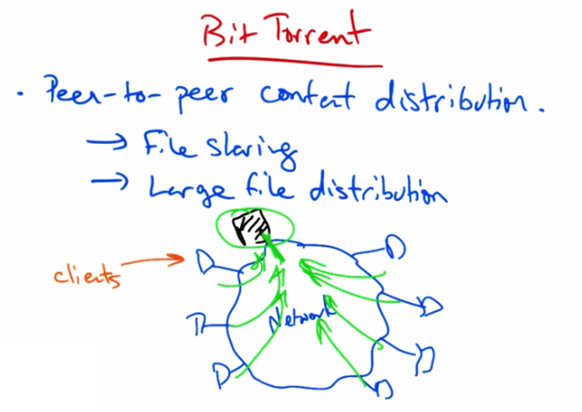 Bit Torrent
· Peer-to-peer content distribution.
→ File sharing
→ Large file distribution
clients
Network